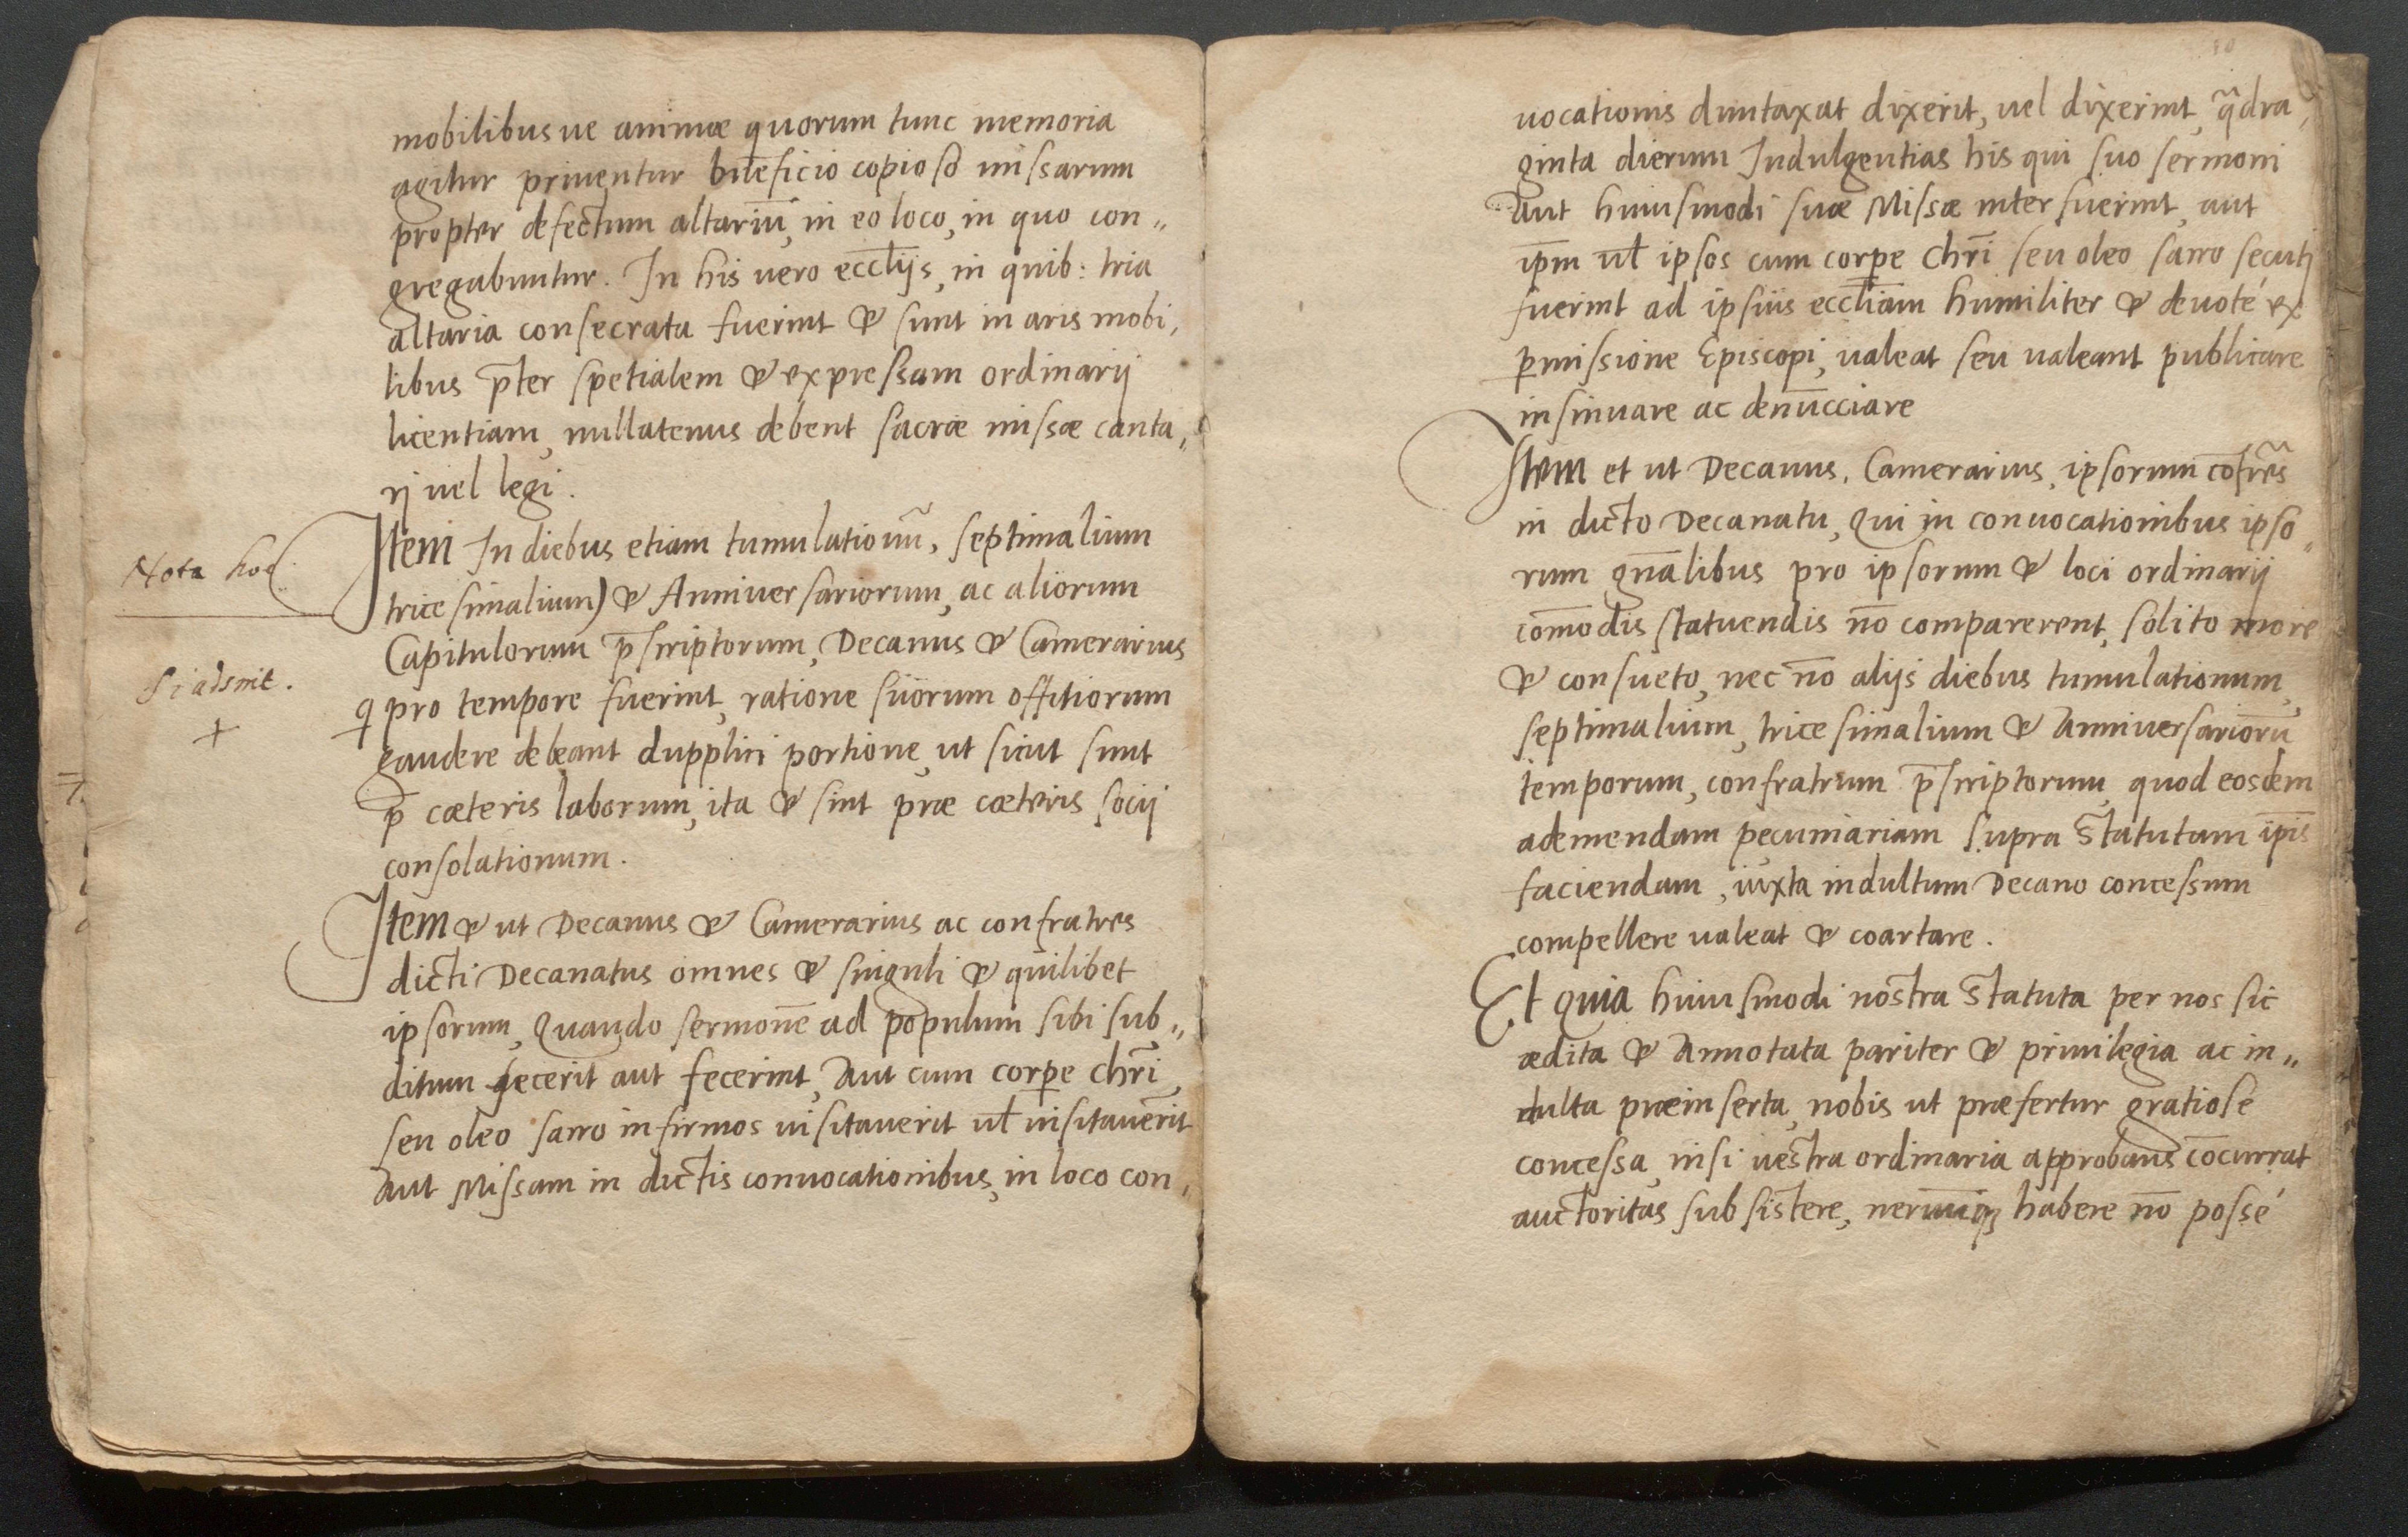 mobilibus ue animæ quorum tunc memoria
agitur priuentur bn̄eficio copioso missarum
propter defectum altariū, in eo loco, in quo con„
gregabuntur. In his uero eccl̄ijs, in quib: tria
altaria consecrata fuerint & sunt in aris mobi,
libus p̄ter spetialem & expressam ordinarij
licentiam, nullatenus debent sacræ missæ canta„
rj uel legi.
Nota hoc
Item In diebus etiam tumulationū, septimalium
tricesimalium) & Anniuersariorum, ac aliorum
Capitulorum p̄scriptorum, Decanus & Camerarius
q pro tempore fuerint, ratione suorum offitiorum
+
gaudere debeant dupplici portione, ut sicut sunt
p̄ cæteris laborum, ita & sint præ cæteris socij
consolationum.
Item & ut Decanus & Camerarius ac confratres
dicti Decanatus omnes & singuli & quilibet
ipsorum, Quando sermonē ad populum sibi sub„
ditum fecerit aut fecerint, Aut cum corpe chr̄i,
seu oleo sacro infirmos uisitauerit ul̄ uisitauer̄it
Aut Missam in dictis conuocationibus, in loco con„
10
uocationis duntaxat dixerit, uel dixerint, q̃dra,
ginta dierum Indulgentias his qui suo sermoni
Aut huiusmodi suæ Missæ interfuerint, aut
ip̄m ul̄ ipsos cum corpe chr̄i seu oleo sacro secuti
fuerint ad ipsius eccl̄iam humiliter & deuoté ex
pmissione Episcopi, ualeat seu ualeant publicare
insinuare ac denūcciare
Item et ut Decanus, Camerarius, ipsorum cōfr̃es
in dicto Decanatu, Qui in conuocationibus ipso„
rum gn̄alibus pro ipsorum & loci ordinarij
com̄odis statuendis nō comparerent, solito more
& consueto, nec nō alijs diebus tumulationum,
septimalium, tricesimalium & Anniuersariorū
temporum, confratrum p̄scriptorum, quod eosdem
ad emendam pecuniariam supra statutam ip̄is
faciendam, iuxta indultum Decano concessum
compellere ualeat & coartare.
Et quia huiusmodi nostra statuta per nos sic
ædita & Annotata pariter & priuilegia ac in„
dulta præinserta, nobis ut præfertur gratiose
concessa, nisi uestra ordinaria approbans cōcurrat
auctoritas subsistere, neruūq3 habere nō possé